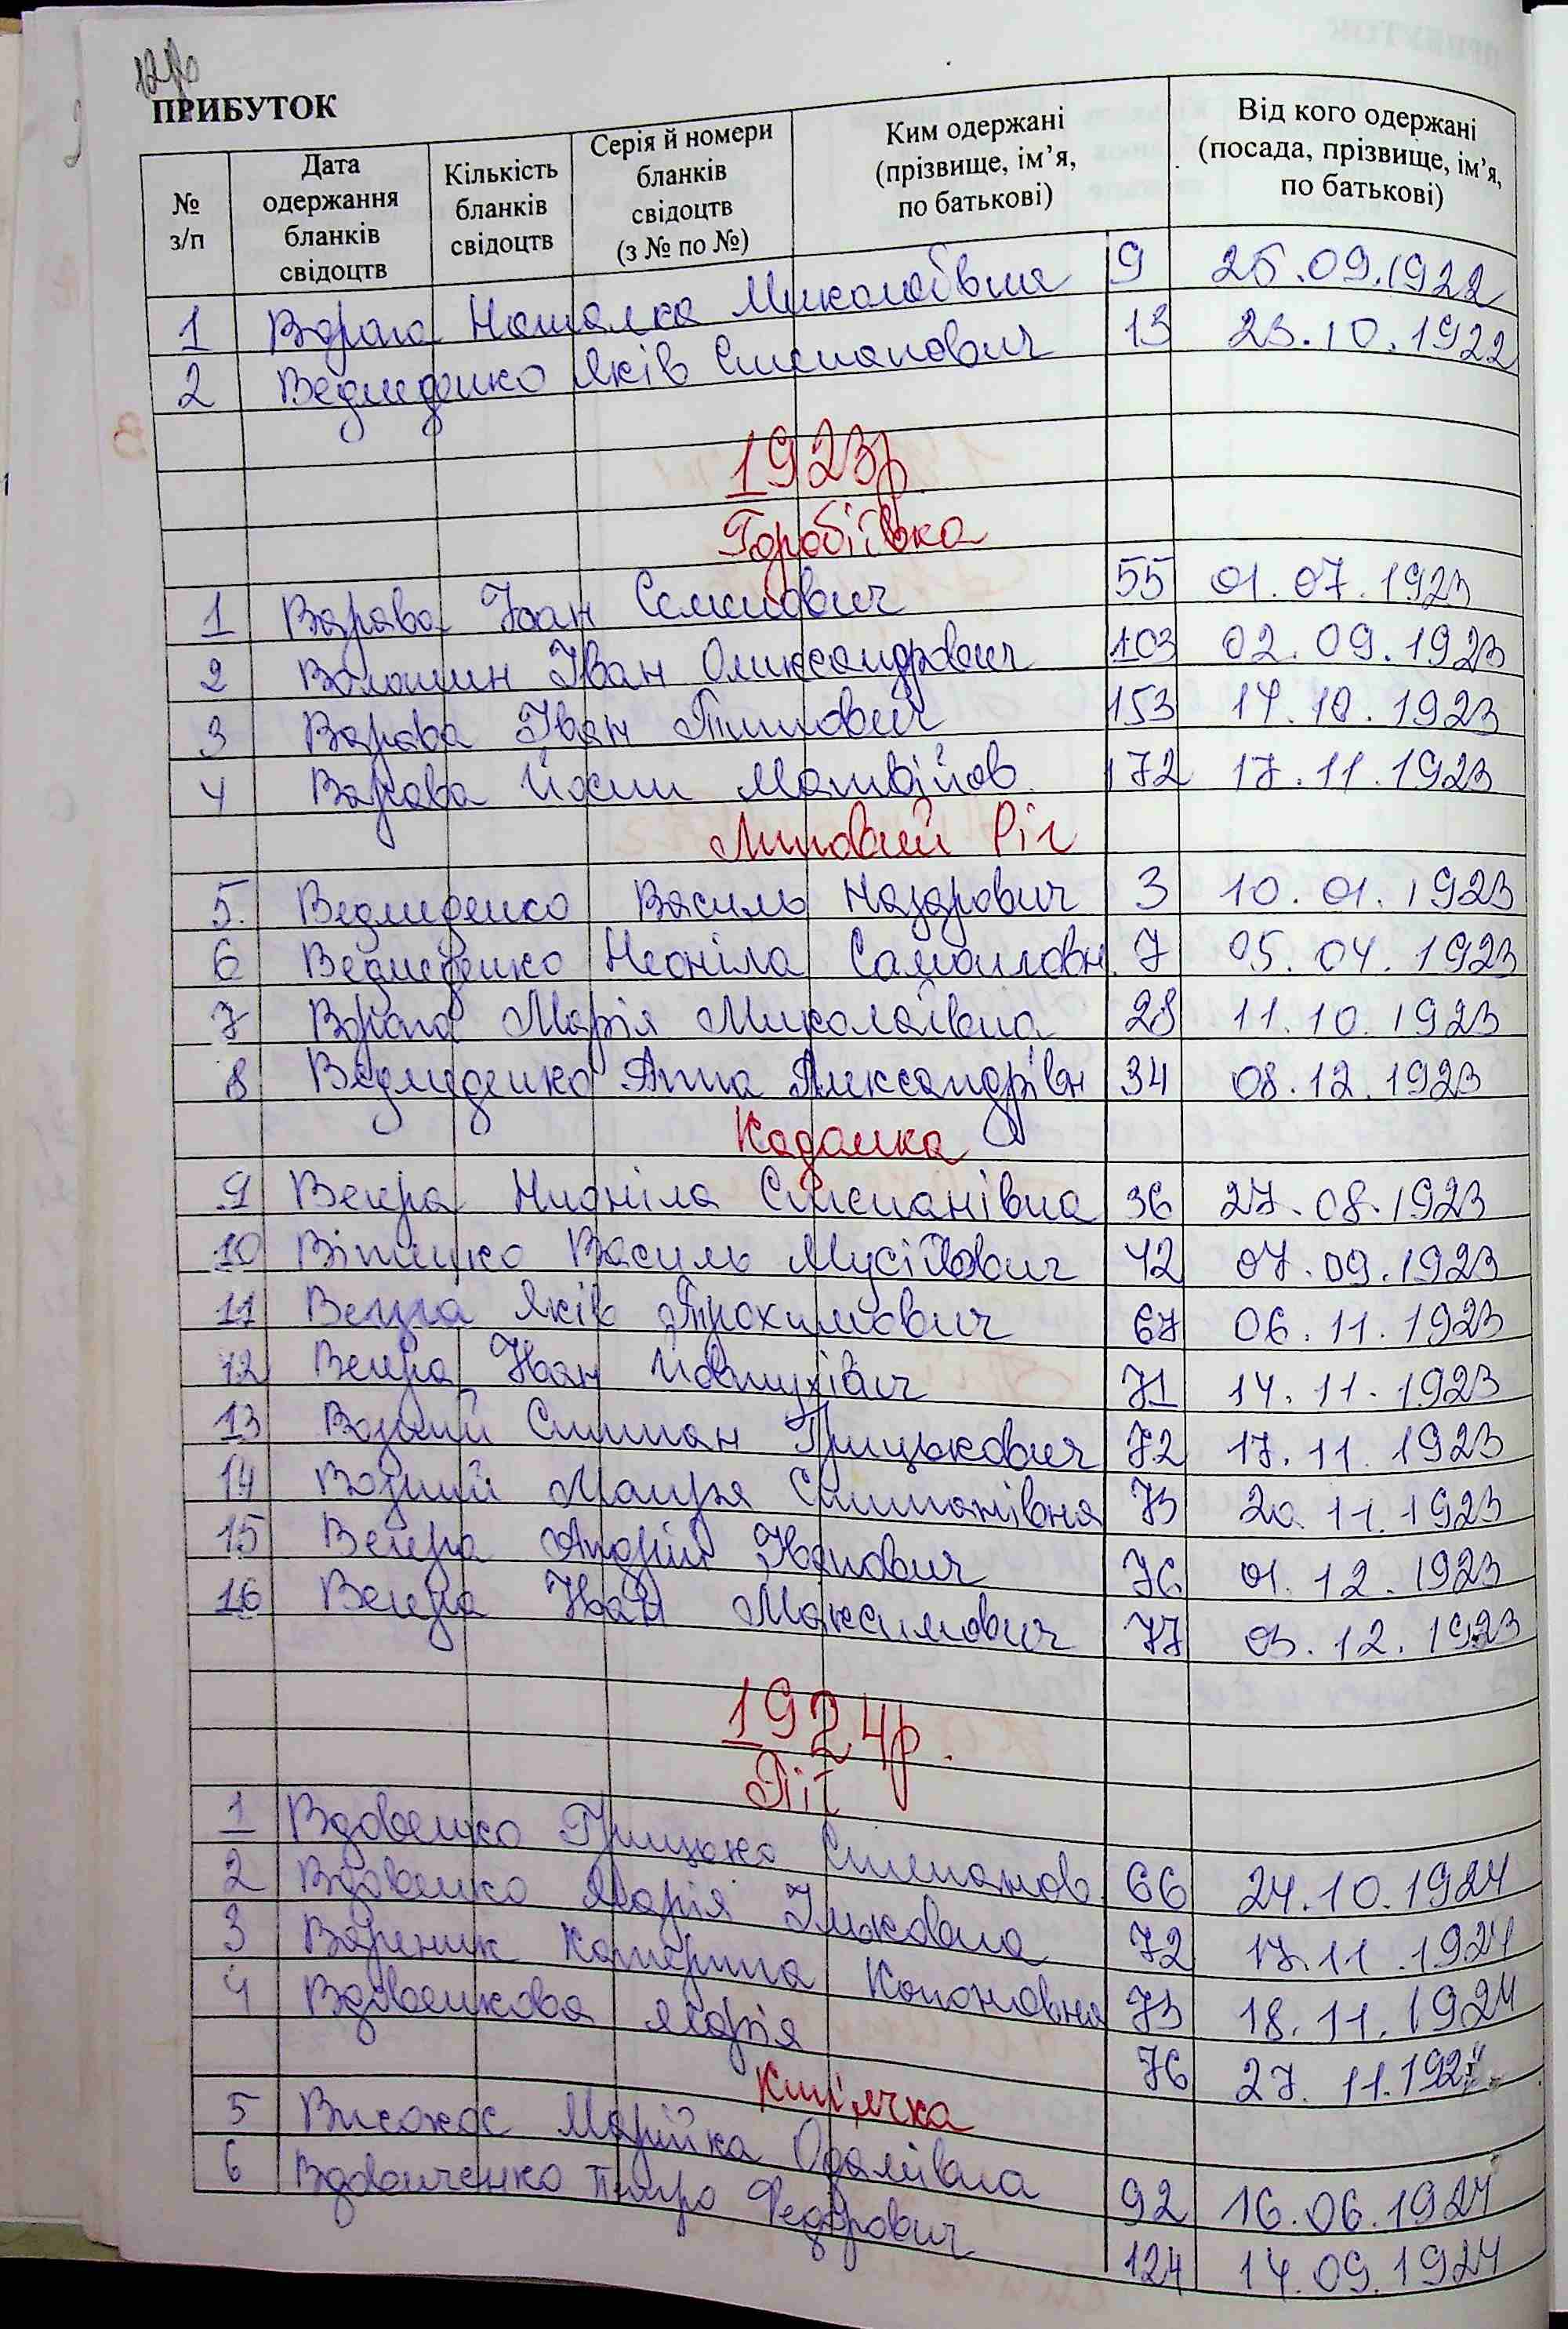 ПРИБУТОК
№ з/п
Дата одержання бланків свідоцтв
Кількість бланків свідоцтв
Серія й номери бланків свідоцтв (з № по №)
Ким одержані (прізвище, ім’я, по батькові)
Від кого одержані (посада, прізвище, ім’я, по батькові)
1 Наталка Миколаївна 9 25.09.1922
2 Ведмеденко Яків Степанович 13 23.10.1922
1923р
Горобіївка
1 Варава Іван Семенович 55 01.07.1923
2 Волошин Іван Олександрович 103 02.09.1923
3 Варава Іван Пилипович 153 14.10.1923
4 Варава Йосип Матвійов. 172 17.11.1923
Липовий Ріг
5. Ведмеденко Василь Назарович 3 10.01.1923
6 Ведмеденко Неоніла Самоиловн. 7 05.04.1923
7 Марія Миколаївна 28 11.10.1923
8 Ведмеденко Анна Александрівн 34 08.12.1923
Кодашка
9 Вещра Ниониіла Степанівна 36 27.08.1923
10 Василь Мусійович 42 07.09.1923
11 Яків Трохимович 67 06.11.1923
12 Іван Йовтухівич 71 14.11.1923
13 Возний Степан Грицькович 72 17.11.1923
14 Возний Мотря Степанівна 73 20.11.1923
15 Андрій Іванович 76 01.12.1923
16 Іван Максимович 77 03.12.1923
1924р.
Пії
1 Вдовенко Грицько Степанов. 66 24.10.1924
2 Вдовенко Марія Ільковна 72 17.11.1924
3 Вареник Катерина Кононовна 73 18.11.1924
4 Вдовенкова Марія 76 27.11.1924
Кип'ячка
5 Високос Марійка Одамівна 92 16.06.1924
6 Вдовиченко Петро Федорович 124 14.09.1924